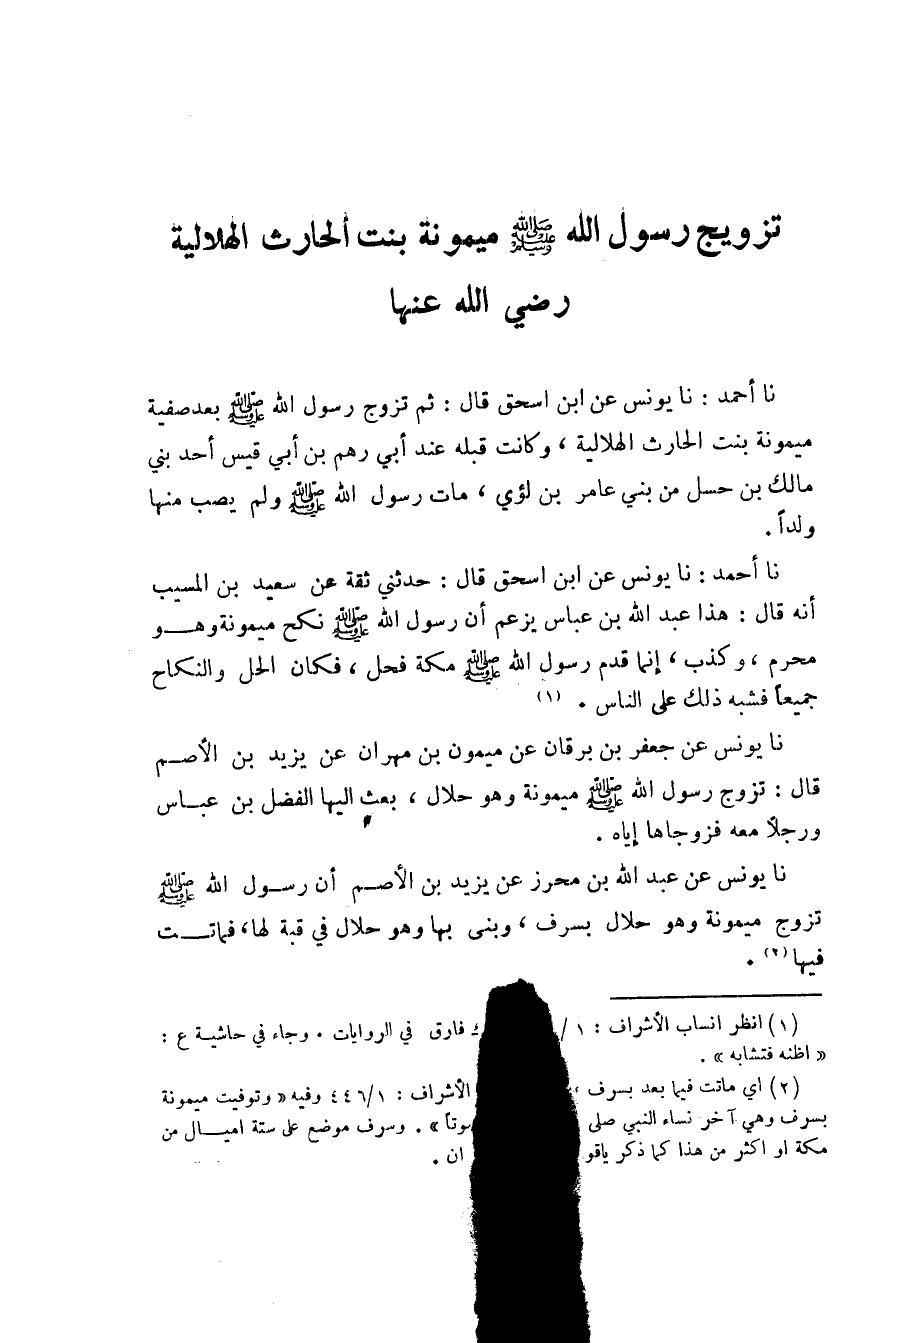 تزويج رسول الله ﷺ ميمونة بنت ألحارث الهلالية
رضي الله عنها
نا أحمد : نا يونس عن ابن اسحق قال : ثم تزوج رسول الله ﷺ بعدصفية
ميمونة بنت الحارث الهلالية ، وكانت قبله عند أبي رهم بن أبي قيس أحد بني
مالك بن حسل من بني عامر بن لؤي ، مات رسول الله ﷺ ولم يصب منها
ولداً .
نا أحمد : نا يونس عن ابن اسحق قال : حدثني ثقة عن سعيد بن المسيب
أنه قال : هذا عبد الله بن عباس يزعم أن رسول الله ﷺ نكح ميمونة وهــو
محرم ، وكذب ، إنما قدم رسول الله ﷺ مكة فحل ، فكان الحل والنكاح
جميعاً فشبه ذلك على الناس . (١)
نا يونس عن جعفر بن برقان عن ميمون بن مهران عن يزيد بن الأصـم
قال : تزوج رسول الله ﷺ ميمونة وهو حلال ، بعث اليها الفضل بن عبـاس
ورجلاً معه فزوجاها إياه .
نا يونس عن عبد الله بن محرز عن يزيد بن الأصـم أن رسـول الله ﷺ
تزوج ميمونة وهو حلال بسرف ، وبنى بها وهو حلال في قبة لها، فماتـت
فيها (٢) .
(١) انظر انساب الأشراف : ١/ فارق في الروايات . وجاء في حاشيـة ع :
« اظنه فتشابه » .
(٢) اي ماتت فيما بعد بسرف ، الأشراف : ٤٤٦/١ وفيه « وتوفيت ميمونة
بسرف وهي آخر نساء النبي صلى » . وسرف موضع على ستة اميـال من
مكة او اكثر من هذا كما ذكر ان .